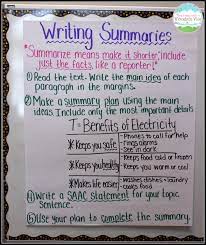 Writing Summaries
*Summarize means make it shorter, include
just the facts, like a reporter!*
① Read the text. Write the main idea of each
paragraph in the margins.
② Make a summary plan using the main
ideas. Include only the most important details
T = Benefits of Electricity
*Keeps you safe
- Phones to call for help
- rings alarms
- see in dark
*Keeps you healthy
- Keeps food cold or frozen
- Keeps you warm or cool
*Makes life easier
- washes dishes/laundry
- cooks food
④ Write a SAAC statement for your topic
sentence.
⑤ Use your plan to complete the summary.